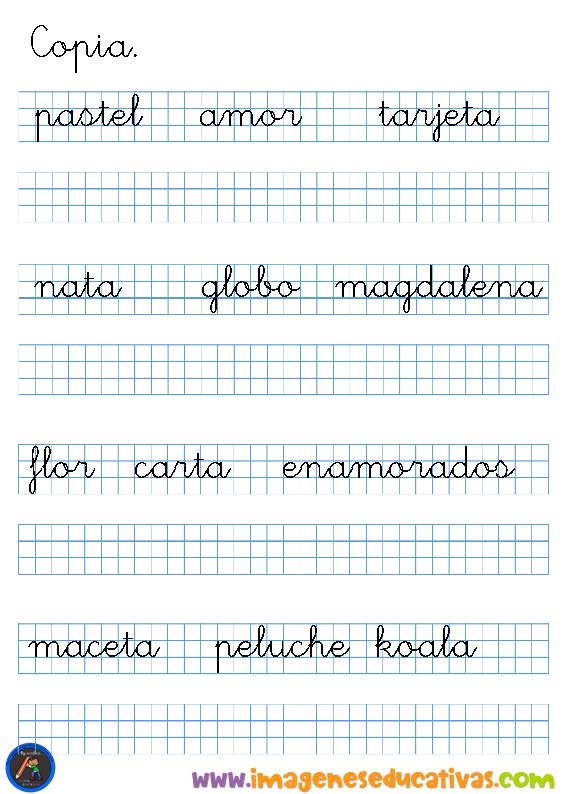 Copia.
pastel amor tarjeta
nata globo magdalena
flor carta enamorados
maceta peluche koala
www.imageneseducativas.com